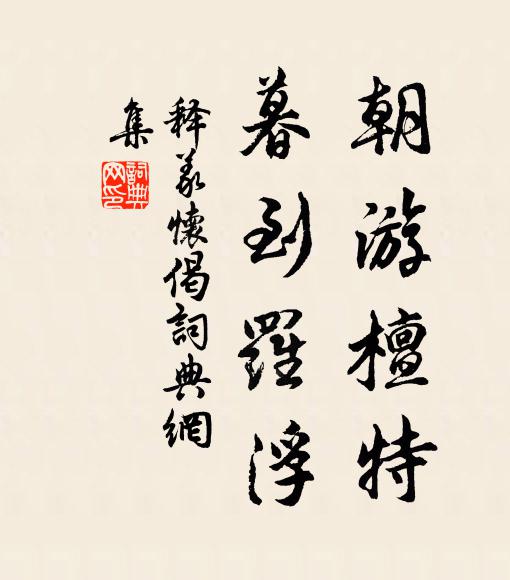 朝游檀特
暮到羅浮
释义懷偈詞典網
集
詞典网印